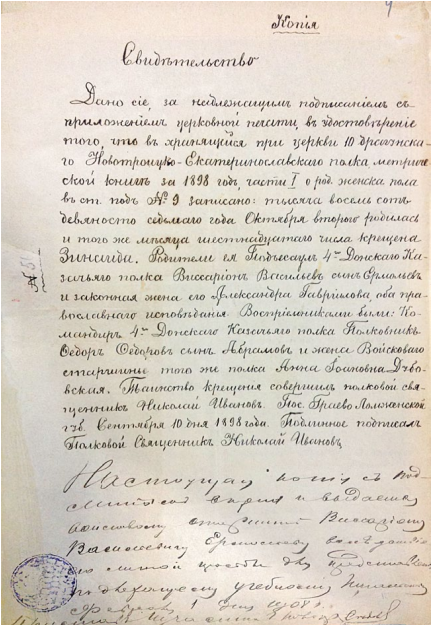 Копія
Свидѣтельство
Дано сіе, за надлежащимъ подписаніемъ съ
приложеніемъ церковной печати, въ удостовѣреніе
того, что въ хранящейся при церкви 10 драгунска-
го Новотроицко-Екатеринославскаго полка метриче-
ской книгѣ за 1898 годъ, части I о род. женска пола
въ ст. подъ № 9 записано: тысяча восемь сотъ
девяносто седьмаго года Октября втораго родилась
и того же мѣсяца шестнадцатаго числа крещена
Зинаида. Родители ея Подъесаулъ 4го Донскаго Ка-
зачьяго полка Виссаріонъ Васильевъ сынъ Ермольевъ
и законная жена его Александра Гаврилова, оба пра-
вославнаго исповѣданія Воспріемниками были: Ко-
мандиръ 4го Донскаго Казачьяго полка Полковникъ
Ѳедоръ Ѳедоровъ сынъ Абрамовъ и жена Войсковаго
старшины того же полка Анна Іоановна Дубов-
ская. Таинство крещенія совершилъ полковой свя-
щенникъ Николай Ивановъ. Пос. Граево Ломжинской
губ. Сентября 10 дня 1898 года. Подлинное подписалъ
Полковой Священникъ Николай Ивановъ
Настоящая копія съ под-
и выдаема
войсковому Виссаріону
Васильевичу
его личной
учебному
Февраля 1 дня 1908 г.